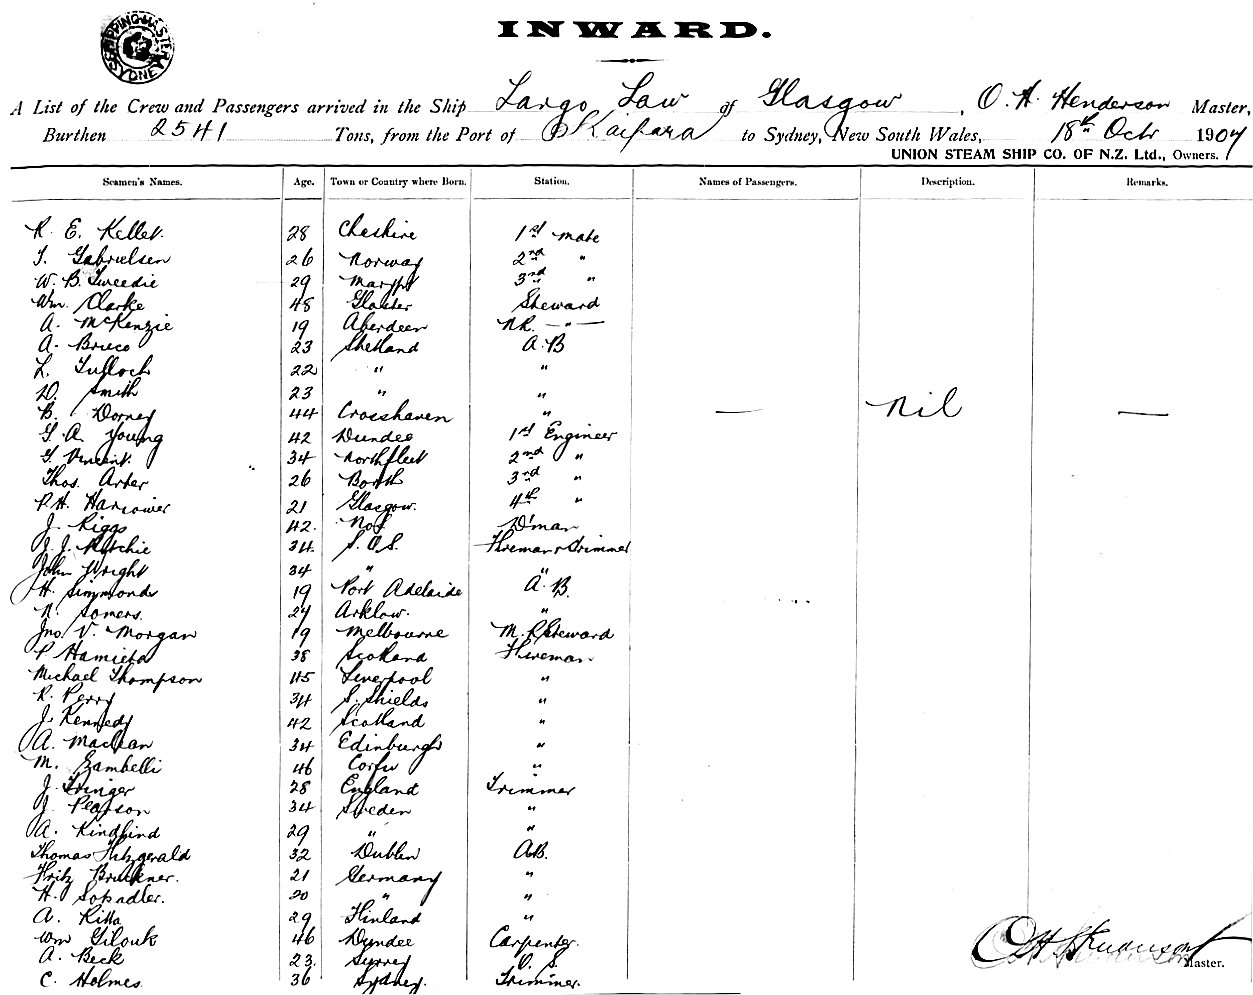 SHIPPING MASTER SYDNEY
INWARD.
A List of the Crew and Passengers arrived in the Ship Largo Law of Glasgow, O. H. Henderson Master,
Burthen 2541 Tons, from the Port of Kaipara to Sydney, New South Wales, 18th Octr 1904
UNION STEAM SHIP CO. OF N.Z. Ltd., Owners.
Seamen's Names. Age. Town or Country where Born. Station. Names of Passengers. Description. Remarks.
R. E. Kellet. 28 Cheshire 1st mate
T. Gabrielsen 26 Norway 2nd "
W. B. Tweedie 29 Marypt 3rd "
Wm. Clarke 48 Gloster Steward
A. McKenzie 19 Aberdeen — " —
A. Bruce 23 Shetland A.B
L. Tulloch 22 " "
D. Smith 23 " "
B. Dorney 44 Crosshaven " — Nil —
G. A. Young 42 Dundee 1st Engineer
G. Vincent. 34 Northfleet 2nd "
Thos. Arter 26 3rd "
P. H. 21 Glasgow. 4th "
J. Riggs 42. D'man
J. J. Ritchie 34 Fireman & Trimmer
John Wright 34 " "
H. Simmonds 19 Port Adelaide A.B.
N. Somers. 24 Arklow. "
Jno. V. Morgan 19 Melbourne M. R. Steward
P 38 Scotland Fireman
Michael Thompson 45 Liverpool "
R. Perry 34 S. Shields "
J. Kennedy 42 Scotland "
A. Maclean 34 Edinburgh "
M. Zambelli 46 Corfu "
J. 28 England Trimmer
J. Pearson 34 Sweden "
A. 29 " "
Thomas Fitzgerald 32 Dublin A.B.
Fritz Bruckner. 21 Germany "
H. 20 " "
A. 29 Finland "
Wm 46 Dundee Carpenter.
A. Beck 23. Surrey O. S.
C. Holmes. 36 Sydney. Trimmer.
O H Henderson
Master.